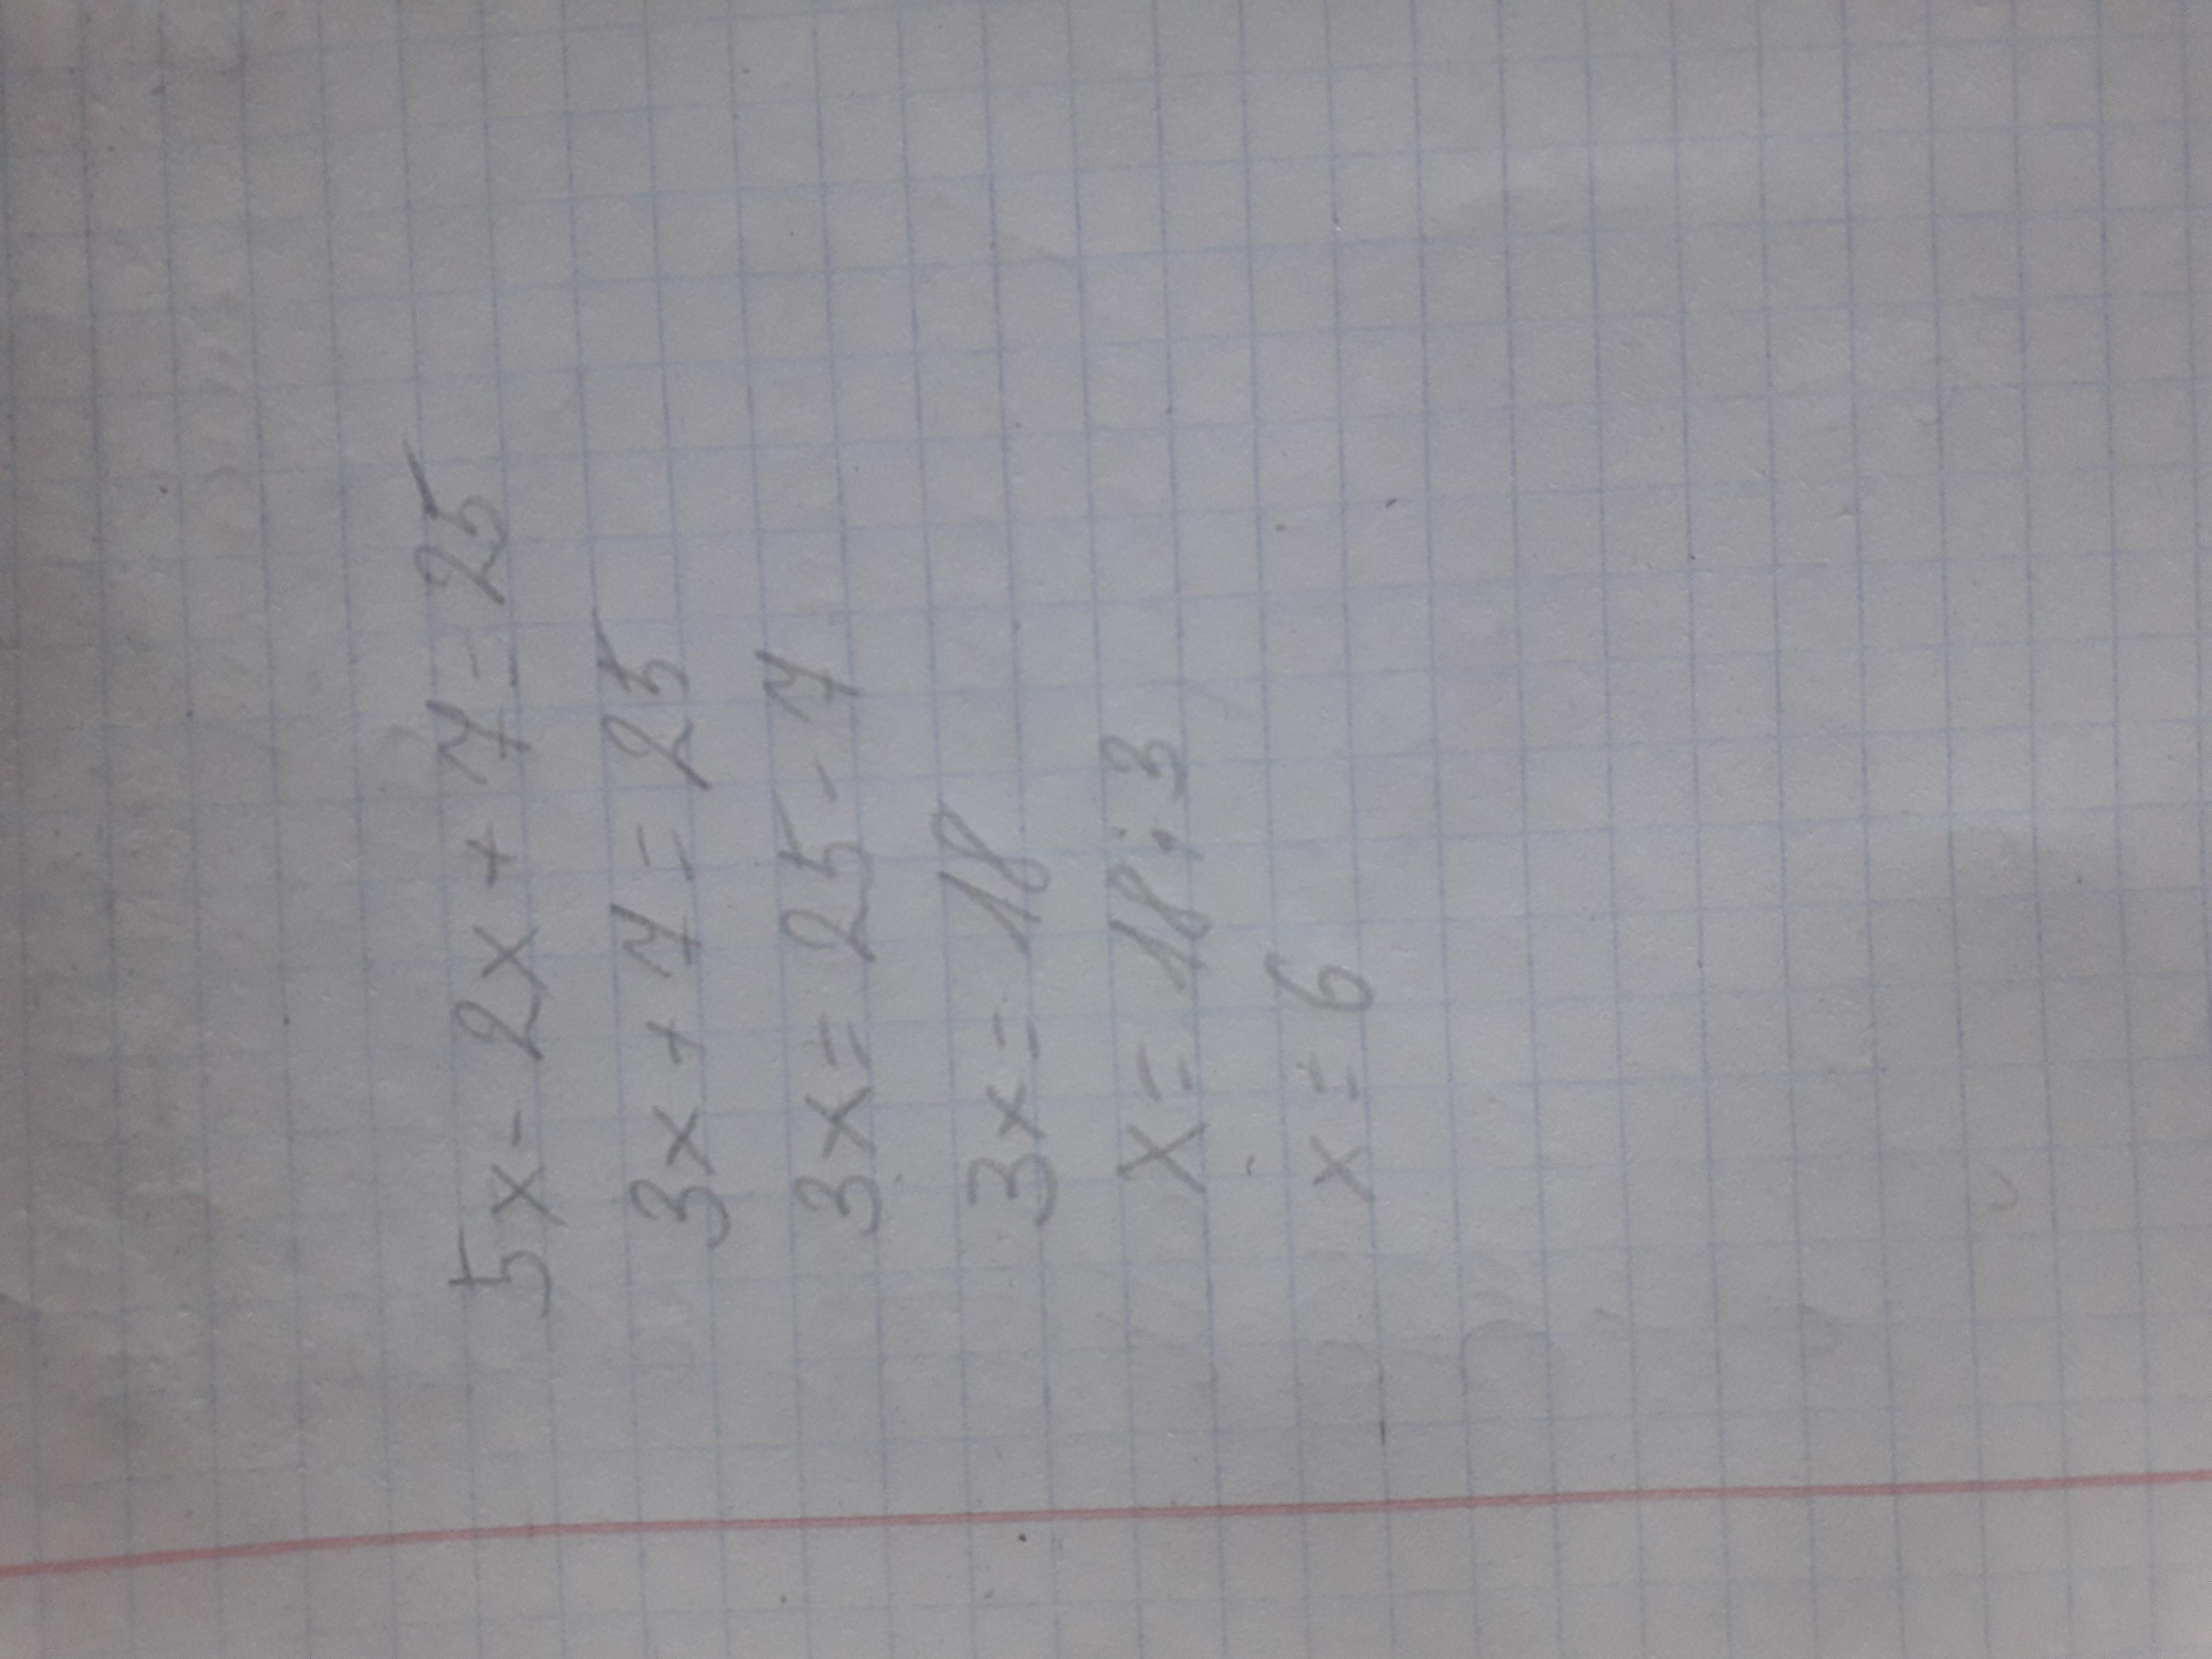 5x - 2x + 7 = 25
3x + 7 = 25
3x = 25 - 7
3x = 18
x = 18 : 3
x = 6